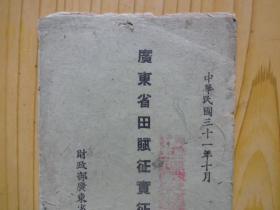 中華民國三十一年十月
廣東省田賦征實征
財政部廣東省